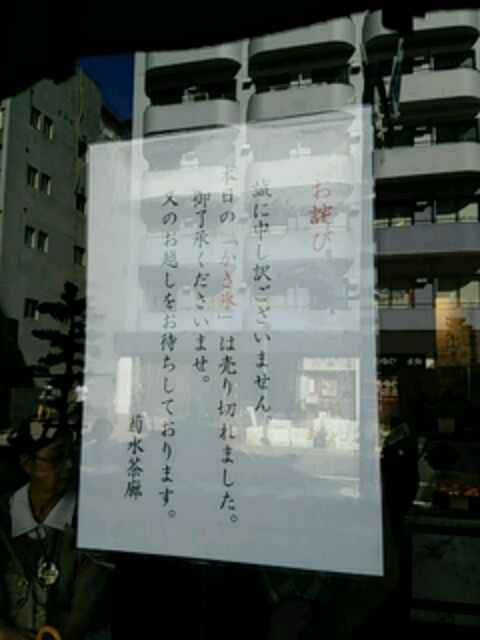 お詫び
誠に申し訳ございません。
本日の「かき氷」は売り切れました。
御了承くださいませ。
又のお越しをお待ちしております。
菊水茶廊